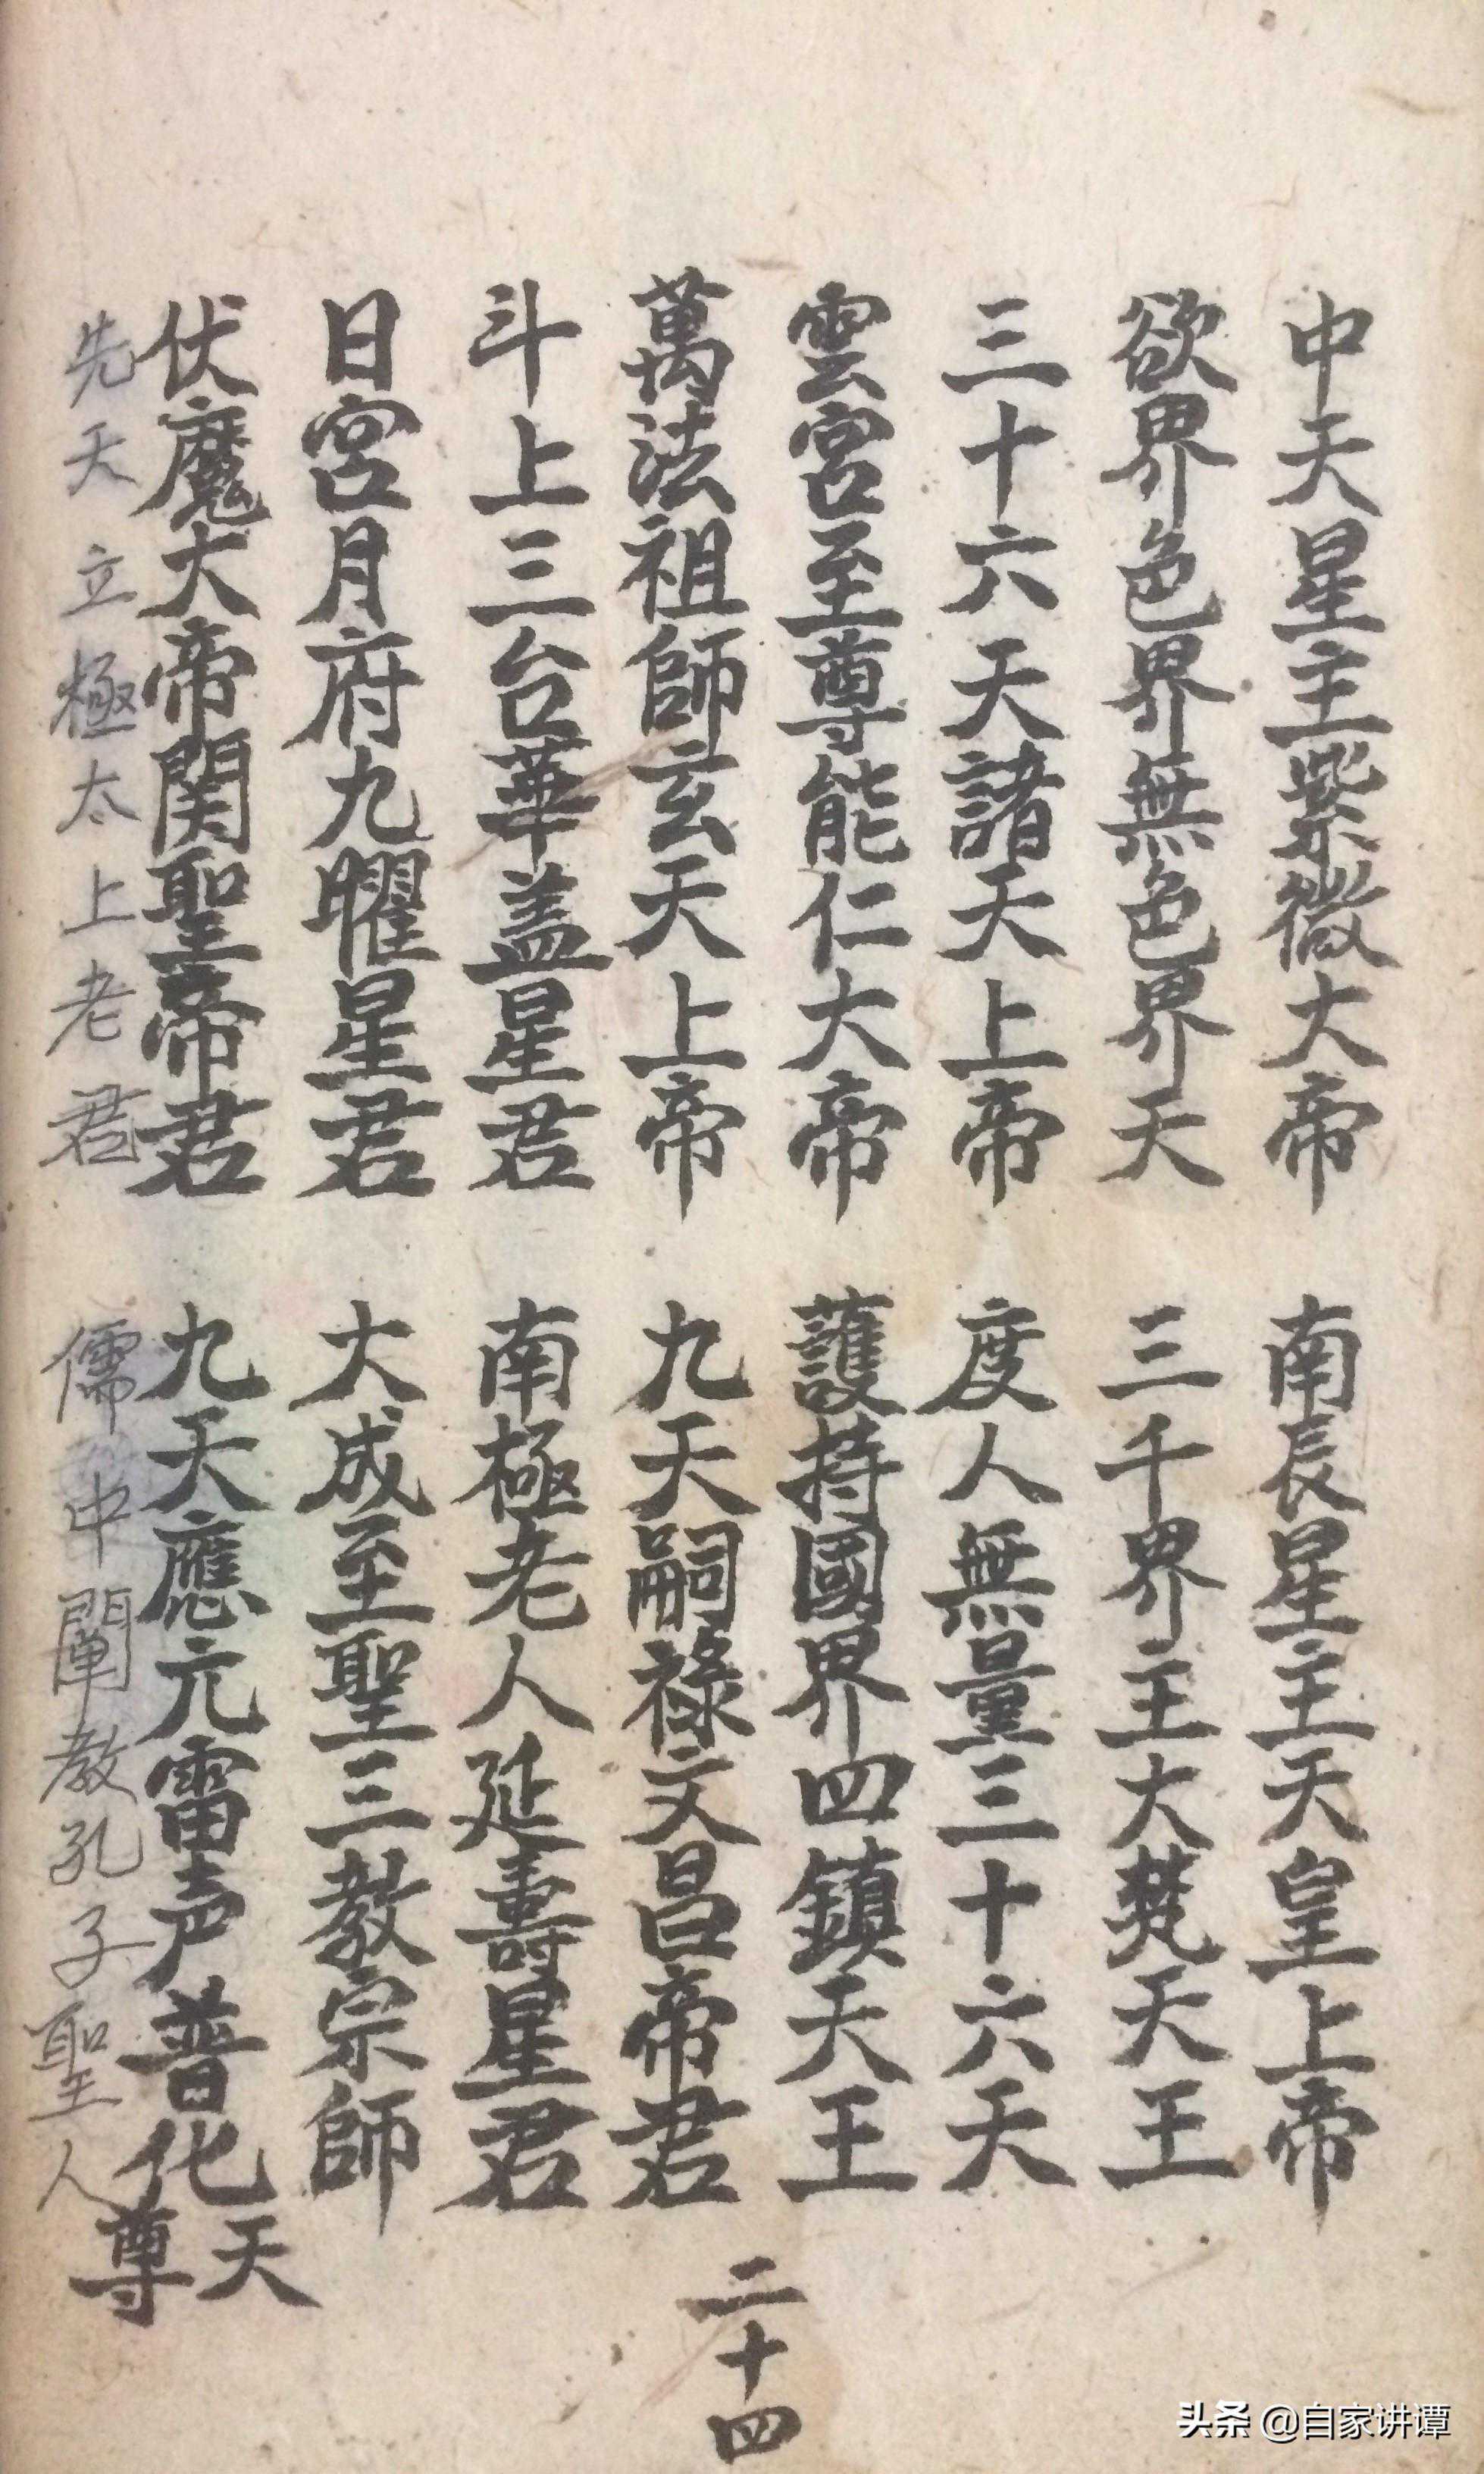 中天星主紫微大帝　南辰星主天皇上帝
欲界色界無色界天　三千界主大梵天王
三十六天諸天上帝　度人無量三十六天
雲宮至尊能仁大帝　護持國界四鎮天王
萬法祖師玄天上帝　九天嗣祿文昌帝君
斗上三台華盖星君　南極老人延壽星君
日宮月府九曜星君　大成至聖三教宗師
伏魔大帝関聖帝君　九天應元雷声普化天尊
先天立極太上老君　儒中闡教孔子聖人
二十四
头条 @自家讲谭